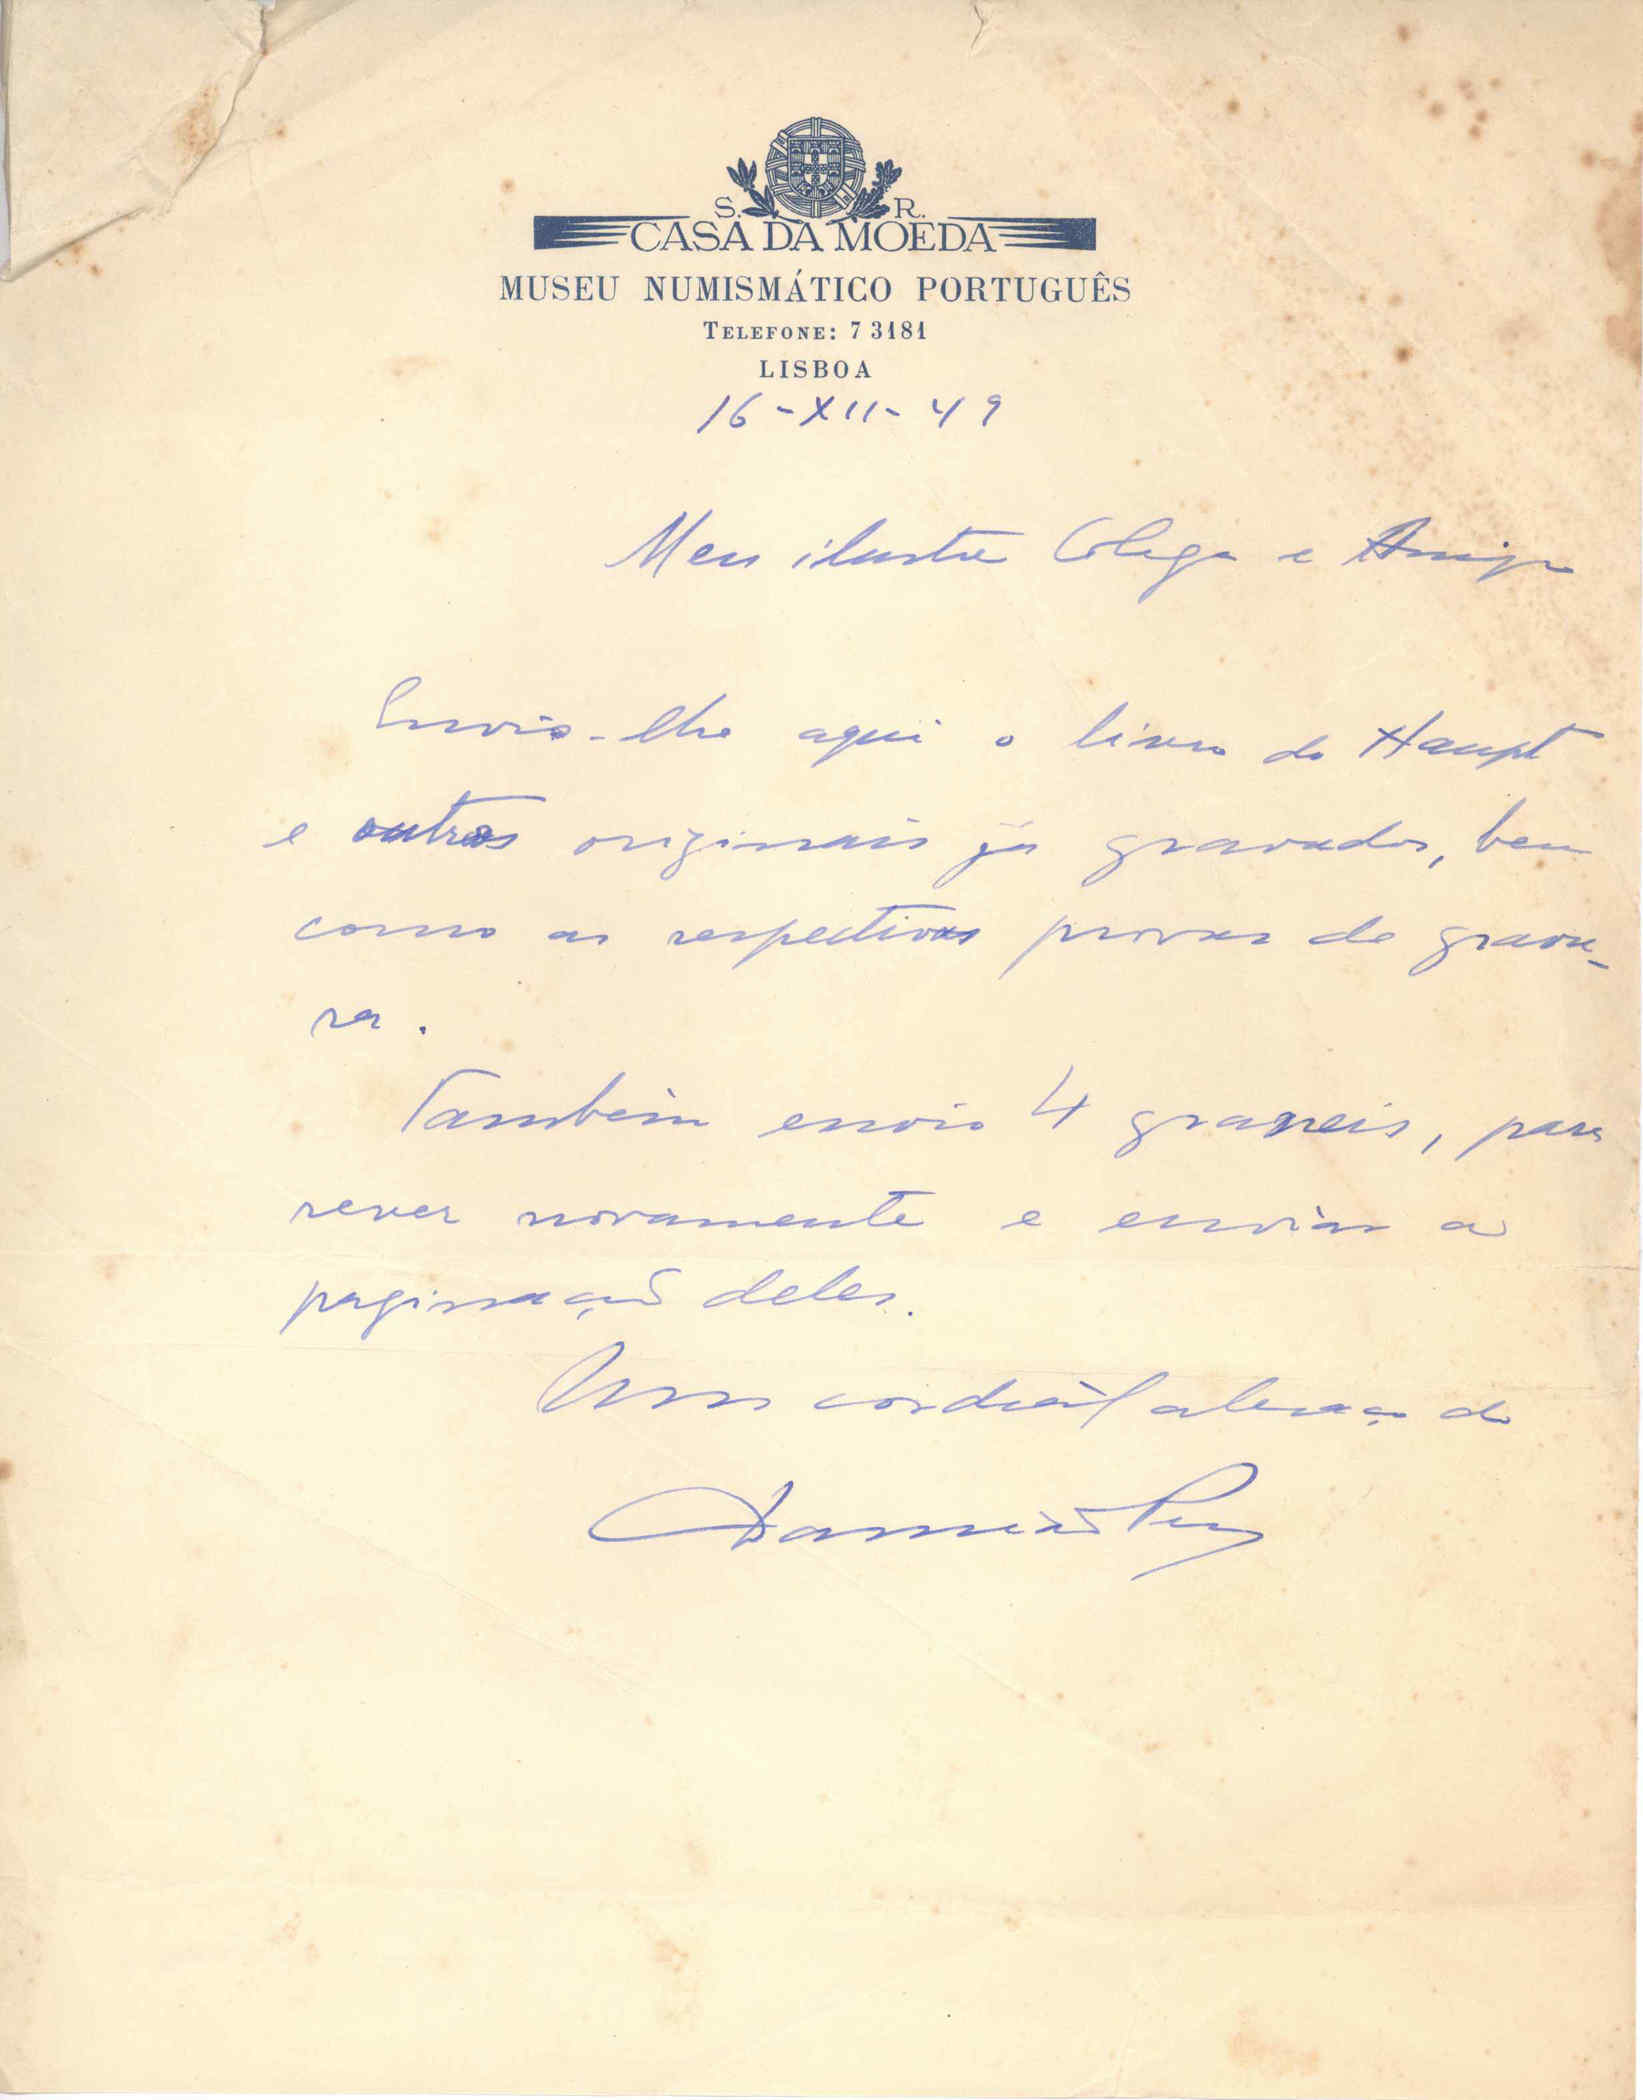 S. R.
CASA DA MOEDA
MUSEU NUMISMÁTICO PORTUGUÊS
TELEFONE: 7 3181
LISBOA
16-XII-49
Meu ilustre Colega e Amigo
Envio-lhe aqui o livro do Haupt
e outros originais já gravados, bem
como as respectivas provas de gravu-
ra.
Também envio 4 graneis, para
rever novamente e enviar a
paginação deles.
Um cordial abraço do
Damião Peres